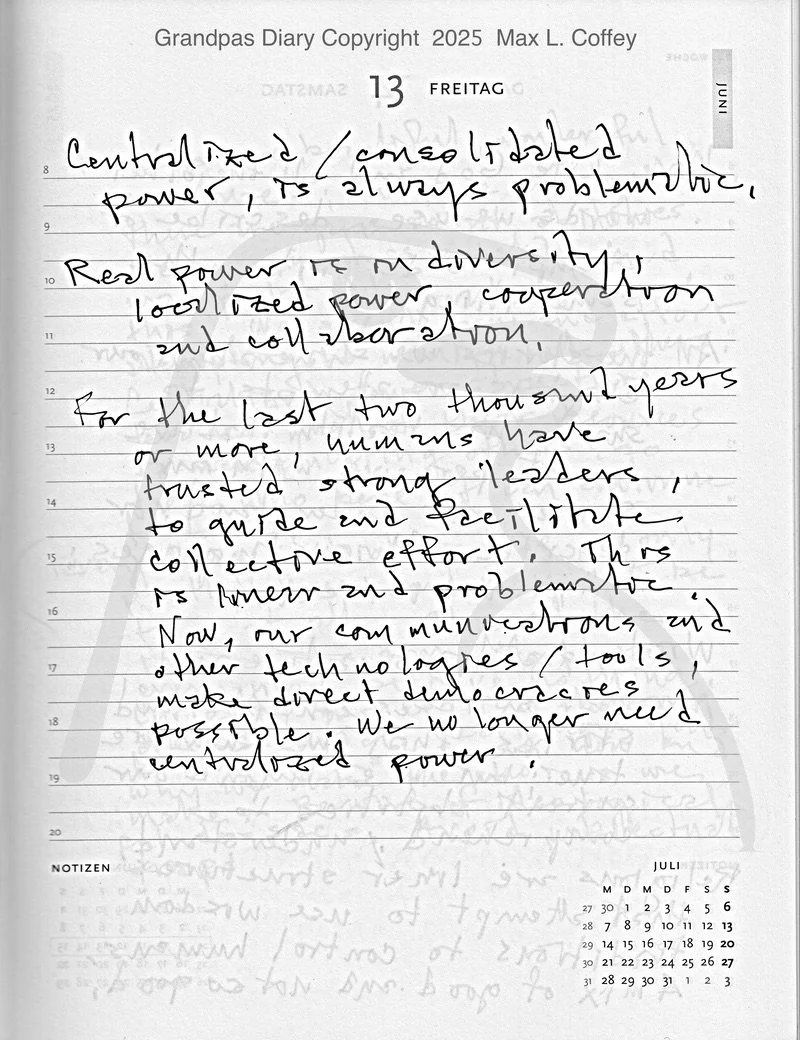 Grandpas Diary Copyright 2025 Max L. Coffey
13 FREITAG
JUNI
Centralized / consolidated
8
power, is always problematic.
9
Real power is in diversity,
10
localized power, cooperation
11
and collaboration.
12
For the last two thousand years
13
or more, humans have
trusted strong leaders,
14
to guide and facilitate
15
collective effort. This
is linear and problematic.
16
Now, our communications and
17
other technologies / tools,
make direct democracies
18
possible. We no longer need
centralized power.
19
20
NOTIZEN
JULI
M D M D F S S
27 30 1 2 3 4 5 6
28 7 8 9 10 11 12 13
29 14 15 16 17 18 19 20
30 21 22 23 24 25 26 27
31 28 29 30 31 1 2 3